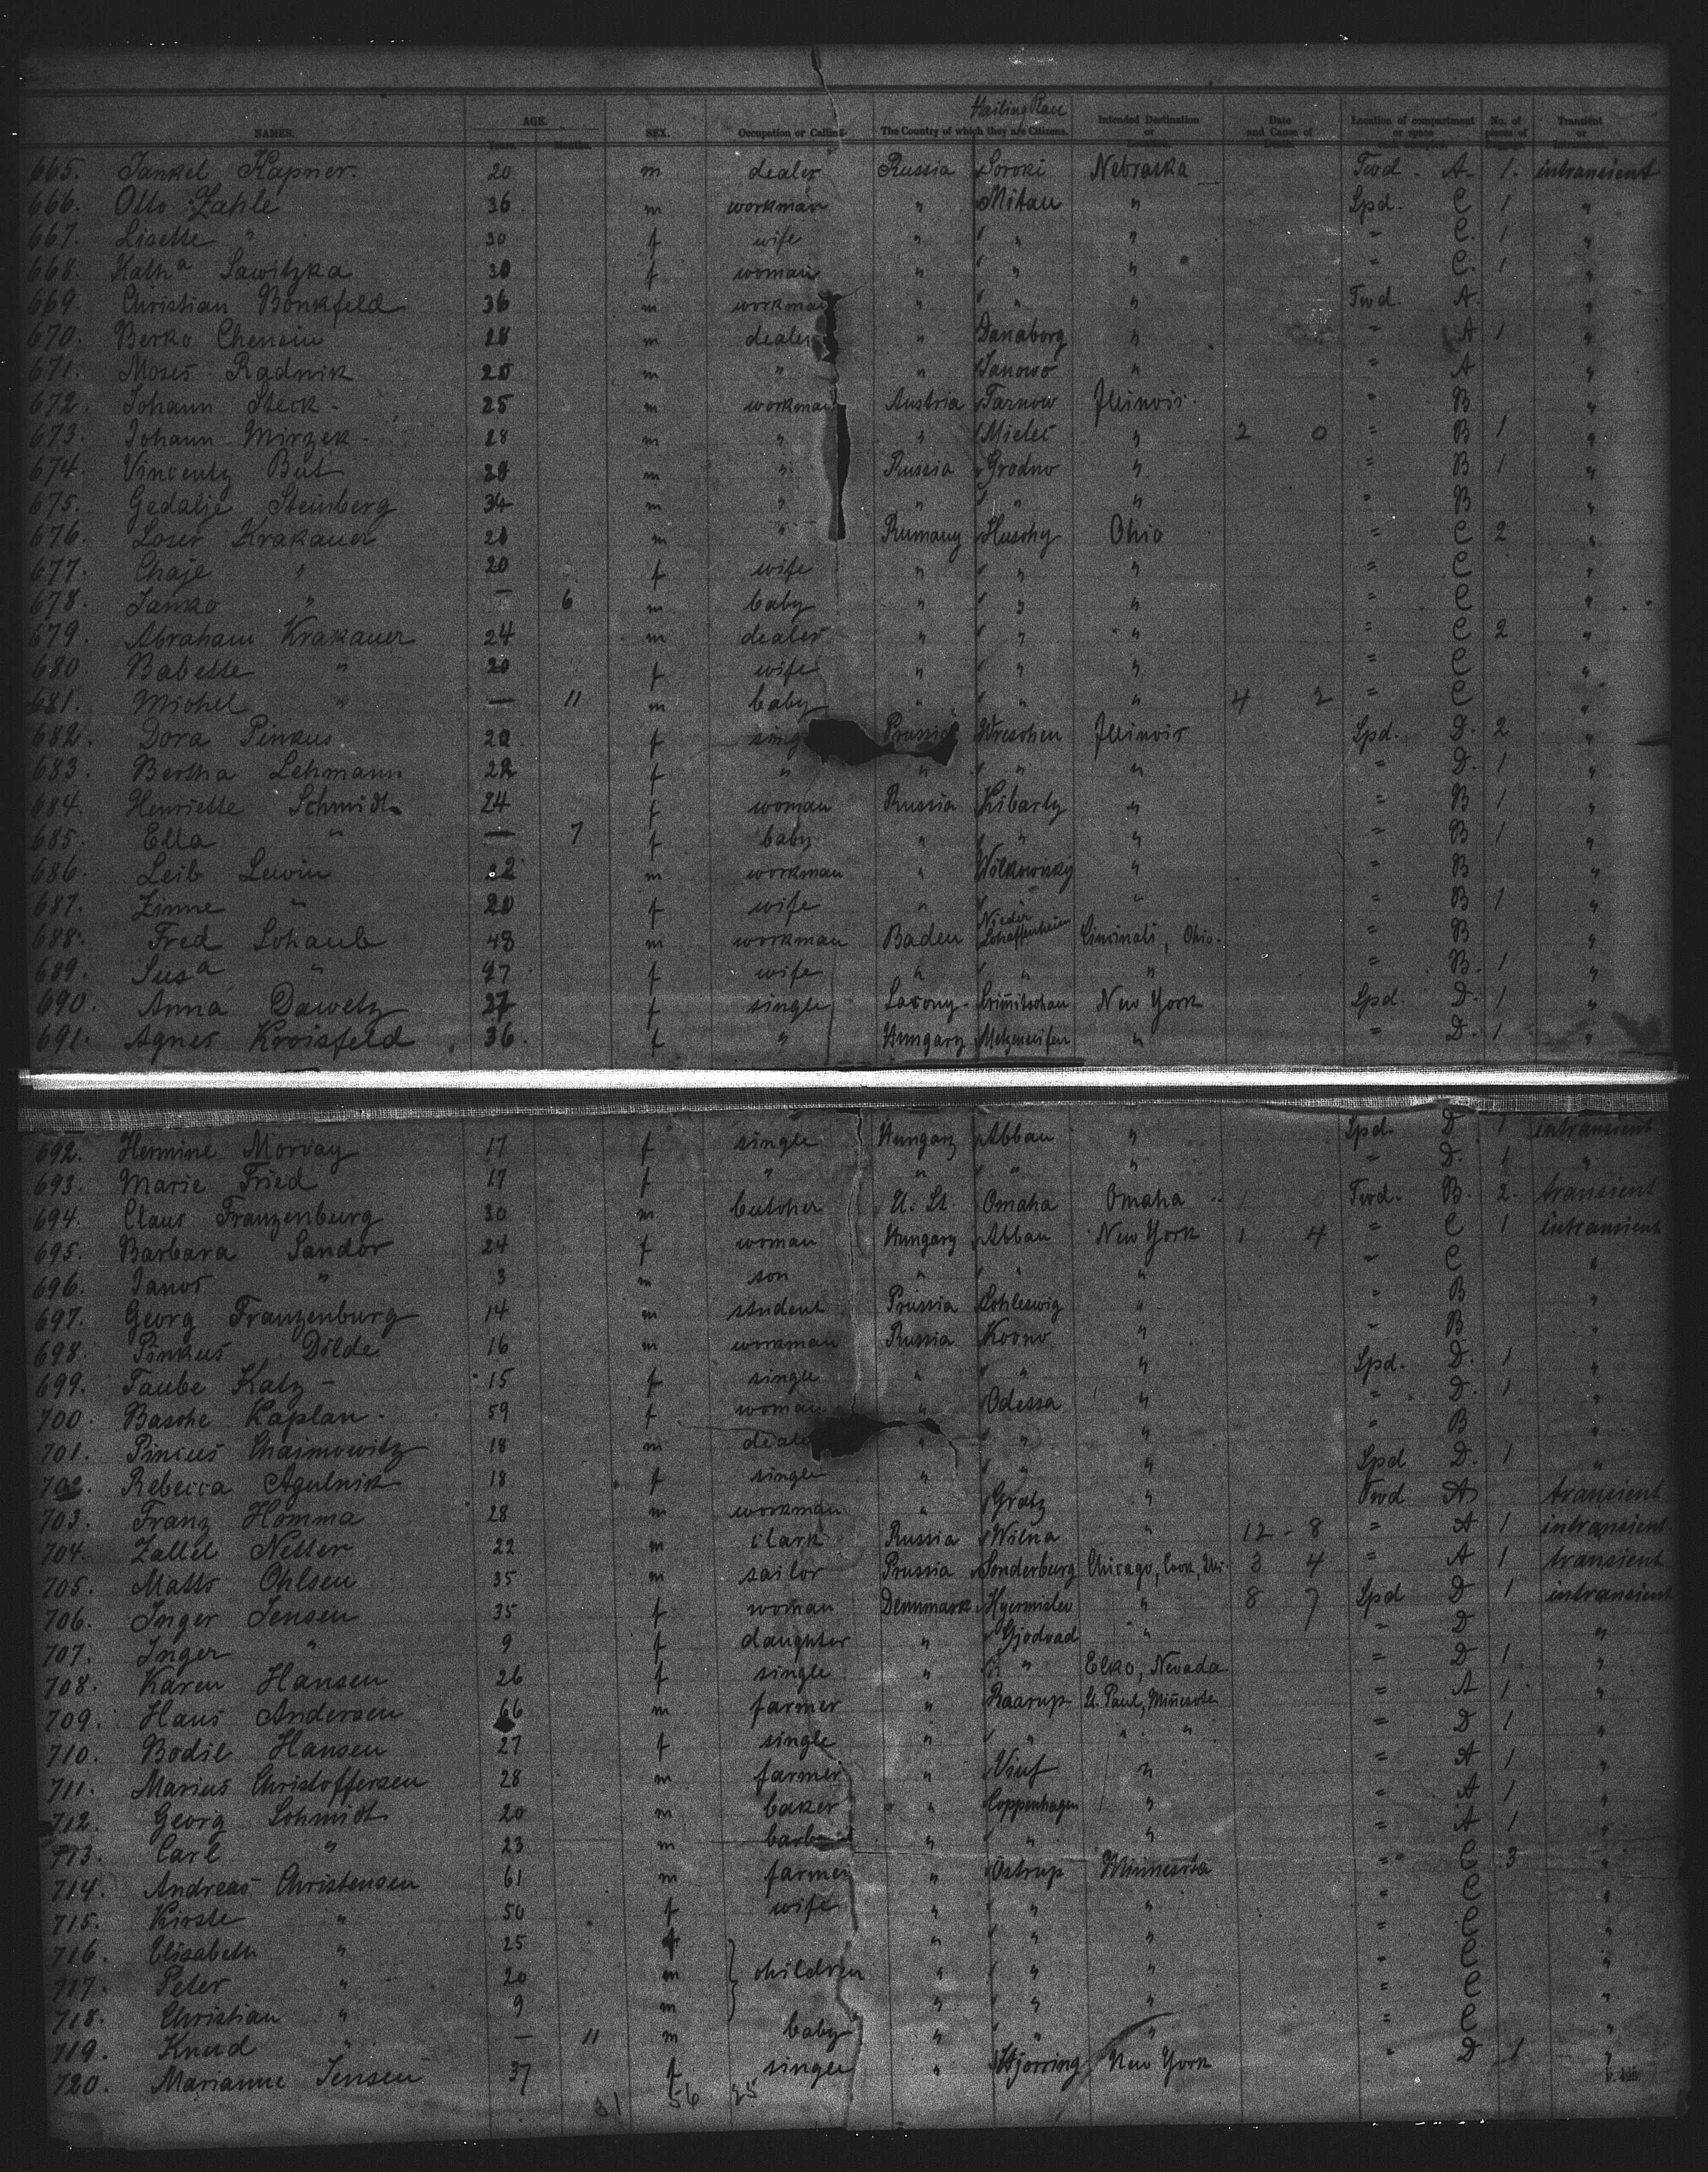 Hailing Place
NAMES. AGE. SEX. Occupation or Calling. The Country of which they are Citizens. Intended Destination or Location. Date and Cause of Death. Location of compartment or space No. of pieces of Baggage Transient or
Years. Months.
665. Jankel Kapner. 20 m dealer Russia Soroki Nebraska Fwd. A. 1. intransient
666. Otto Zahle 36 m workman " Mitau " Spd. C 1 "
667. Lisette " 30 f wife " " " " C. 1 "
668. Kath a Sawitzka 30 f woman " " " " C. 1 "
669. Christian Bonkfeld 36 m workman " " " Fwd. A. "
670. Berko Chensin 28 m dealer " Danaborg " " A 1 "
671. Moses Radnik 20 m " " Janowo " " A "
672. Johann Steck 25 m workman Austria Tarnow Illinois " B "
673. Johann Mirzek 28 m " " Mielec " 2 0 " B 1 "
674. Vincenty But 28 m " Russia Grodno " " B 1 "
675. Gedalje Steinberg 34 m " " " " " B "
676. Loser Krakauer 20 m " Rumany Huschy Ohio " C 2 "
677. Chaje " 20 f wife " " " " C "
678. Janko " — 6 m baby " " " " C "
679. Abraham Krakauer 24 m dealer " " " " C 2 "
680 Babette " 20 f wife " " " " C "
681. Michel " — 11 m baby " " " 4 2 " C "
682. Dora Pinkus 20 f sing Prussia Wreschen Illinois Spd. D. 2 "
683. Bertha Lehmann 22 f " " " " " D. 1 "
684. Henriette Schmidt 24 f woman Russia Kibarty " " B 1 "
685. Ella " — 7 f baby " " " " B 1 "
686. Leib Lewin 22 m workman " Wilkowisky " " B "
687. Zinne " 20 f wife " " " " B 1 "
688. Fred Schaub 48 m workman Baden Nieder Schaffenheim Cincinati, Ohio. " B "
689. Sus a " 47 f wife " " " " B. 1 "
690. Anna Dawetz 27 f single Saxony Crimitschau New York Spd. D. 1 "
691. Agnes Kroisfeld 36. f " Hungary Metzenseifen " " D. 1 "
692. Hermine Morvay 17 f single Hungary Abbau " Spd. D 1 intransient
693. Marie Fried 17 f " " " " " D. 1 "
694. Claus Franzenburg 30 m butcher U. St. Omaha Omaha Fwd. B. 2. transient
695. Barbara Sandor 24 f woman Hungary Abbau New York 1 4 " C 1 intransient
696. Janos " 3 m son " " " " C "
697. Georg Franzenburg 14 m student Prussia Schleswig " " B "
698. Pinkus Dilde 16 m workman Russia Kovno " " B "
699. Taube Katz 15 f single " " " Spd. D. 1 "
700. Basche Kaplan 59 f woman " Odessa " " D. 1 "
701. Pincus Chaimowitz 18 m deale " " " " B "
702. Rebecca Agulnik 18 f single " " " Spd D. 1 "
703. Franz Homma 28 m workman " Gratz " Fwd A transient
704. Zallel Netter 22 m clark Russia Wilna " 12 - 8 " A 1 intransient
705. Matts Ohlsen 35 m sailor Prussia Sonderburg Chicago, Cook, Illi 3 4 " A 1 transient
706. Inger Jensen 35 f woman Denmmark Hyermislev " 8 7 Spd D 1 intransient
707. Inger " 9 f daughter " Gjodvad " " D "
708. Karen Hansen 26 f single " " Elko, Nevada " D 1 "
709. Hans Andersen 66 m farmer " Raarup St. Paul, Minnesota " A 1 "
710. Bodil Hansen 27 f single " " " " " D 1 "
711. Marius Christoffersen 28 m farmer " Viuf " " A 1 "
712. Georg Schmidt 20 m baker " Coppenhagen " " A 1 "
713. Carl " 23 m " " " " A 1 "
714. Andreas Christensen 61 m farmer " Ostrup Minnesota " C 3 "
715. Kirste " 50 f wife " " " " C "
716. Elisabeth " 25 f " " " " C "
717. Peter " 20 m children " " " " C "
718. Christian " 9 m " " " " C "
719. Knud " — 11 m baby " " " " C "
720. Marianne Jensen 37 f single " Hjorring New York " D 1 "
31 56 25